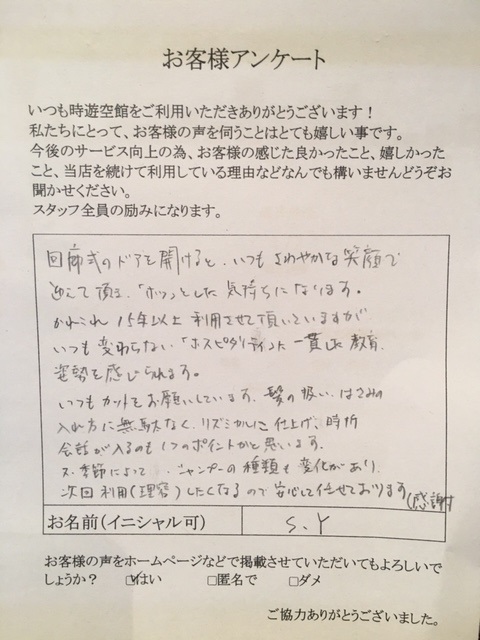 お客様アンケート
いつも時遊空館をご利用いただきありがとうございます！
私たちにとって、お客様の声を伺うことはとても嬉しい事です。
今後のサービス向上の為、お客様の感じた良かったこと、嬉しかった
こと、当店を続けて利用している理由などなんでも構いませんどうぞお
聞かせください。
スタッフ全員の励みになります。
回廊式のドアを開けると、いつもさわやかな笑顔で
迎えて頂き、「ホッ」とした気持ちになります。
かれこれ15年以上利用させて頂いていますが
いつも変わらない「ホスピタリティ」と一貫した教育
姿勢を感じられます。
いつもカットをお願いしています。髪の扱い、はさみの
入れ方に無駄なく、リズミカルに仕上げ、時折
会話が入るのも1つのポイントかと思います。
又、季節によって、シャンプーの種類も変化があり、
次回利用(理容)したくなるので安心して任せております
(感謝)
お名前(イニシャル可) S.Y
お客様の声をホームページなどで掲載させていただいてもよろしいで
しょうか？ ☑はい □匿名で □ダメ
ご協力ありがとうございました。